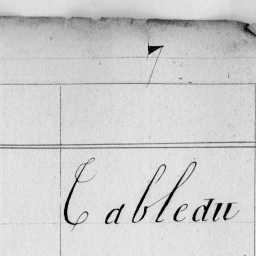 7
Tableau